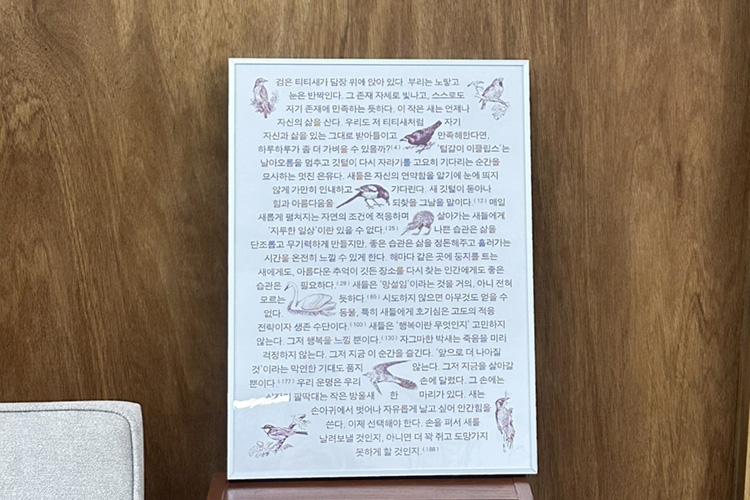 검은 티티새가 담장 위에 앉아 있다. 부리는 노랗고
눈은 반짝인다. 그 존재 자체로 빛나고, 스스로도
자기 존재에 만족하는 듯하다. 이 작은 새는 언제나
자신의 삶을 산다. 우리도 저 티티새처럼 자기
자신과 삶을 있는 그대로 받아들이고 만족해한다면,
하루하루가 좀 더 가벼울 수 있을까?(4) '털갈이 이클립스'는
날아오름을 멈추고 깃털이 다시 자라기를 고요히 기다리는 순간을
묘사하는 멋진 은유다. 새들은 자신의 연약함을 알기에 눈에 띄지
않게 가만히 인내하고 기다린다. 새 깃털이 돋아나
힘과 아름다움을 되찾을 그날을 말이다.(12) 매일
새롭게 펼쳐지는 자연의 조건에 적응하며 살아가는 새들에게
'지루한 일상'이란 있을 수 없다.(25) 나쁜 습관은 삶을
단조롭고 무기력하게 만들지만, 좋은 습관은 삶을 정돈해주고 흘러가는
시간을 온전히 느낄 수 있게 한다. 해마다 같은 곳에 둥지를 트는
새에게도, 아름다운 추억이 깃든 장소를 다시 찾는 인간에게도 좋은
습관은 필요하다.(29) 새들은 '망설임'이라는 것을 거의, 아니 전혀
모르는 듯하다.(85) 시도하지 않으면 아무것도 얻을 수
없다. 동물, 특히 새들에게 호기심은 고도의 적응
전략이자 생존 수단이다.(103) 새들은 '행복이란 무엇인지' 고민하지
않는다. 그저 행복을 느낄 뿐이다.(130) 자그마한 박새는 죽음을 미리
걱정하지 않는다. 그저 지금 이 순간을 즐긴다. '앞으로 더 나아질
것'이라는 막연한 기대도 품지 않는다. 그저 지금을 살아갈
뿐이다.(177) 우리 운명은 우리 손에 달렸다. 그 손에는
팔딱대는 작은 방울새 한 마리가 있다. 새는
손아귀에서 벗어나 자유롭게 날고 싶어 안간힘을
쓴다. 이제 선택해야 한다. 손을 펴서 새를
날려보낼 것인지, 아니면 더 꽉 쥐고 도망가지
못하게 할 것인지.(188)